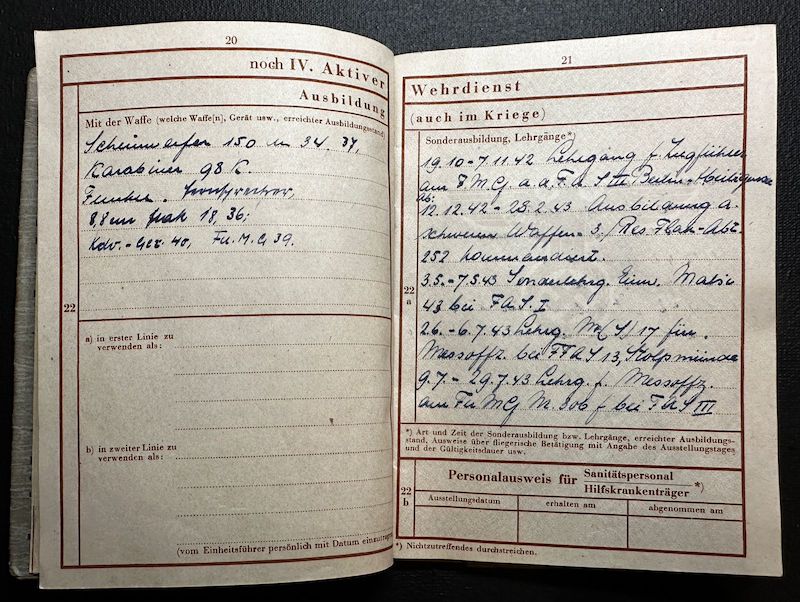 20
noch IV. Aktiver
Ausbildung
Mit der Waffe (welche Waffe[n], Gerät usw., erreichter Ausbildungsstand)
Scheinwerfer 150 u 34, 37,
Karabiner 98 K.
8,8 cm Flak 18, 36;
Kdo.-Ger. 40, Fu. M. G 39.
22
a) in erster Linie zu
verwenden als:
b) in zweiter Linie zu
verwenden als:
(vom Einheitsführer persönlich mit Datum einzutragen)
21
Wehrdienst
(auch im Kriege)
Sonderausbildung, Lehrgänge*)
19.10-7.11.42 Lehrgang f. Zugführer
am F.M.G a. d. F.A.S III Berlin-Heiligensee
12.12.42-28.2.43 Ausbildung a.
schweren Waffen 3./Res. Flak-Abt.
252 kommandiert.
3.5.-7.5.43 Sonderlehrg.
43 bei FAS. I
2.6.-6.7.43 Lehrg. 17 für
Messoffz. bei FAS 13, Stolpmünde
9.7.-29.7.43 Lehrg. f. Messoffz.
am Fu MG bei FAS III
22
a
*) Art und Zeit der Sonderausbildung bzw. Lehrgänge, erreichter Ausbildungs-
stand, Ausweise über fliegerische Betätigung mit Angabe des Ausstellungstages
und der Gültigkeitsdauer usw.
22
b
Personalausweis für Sanitätspersonal
Hilfskrankenträger *)
Ausstellungsdatum erhalten am abgenommen am
*) Nichtzutreffendes durchstreichen.